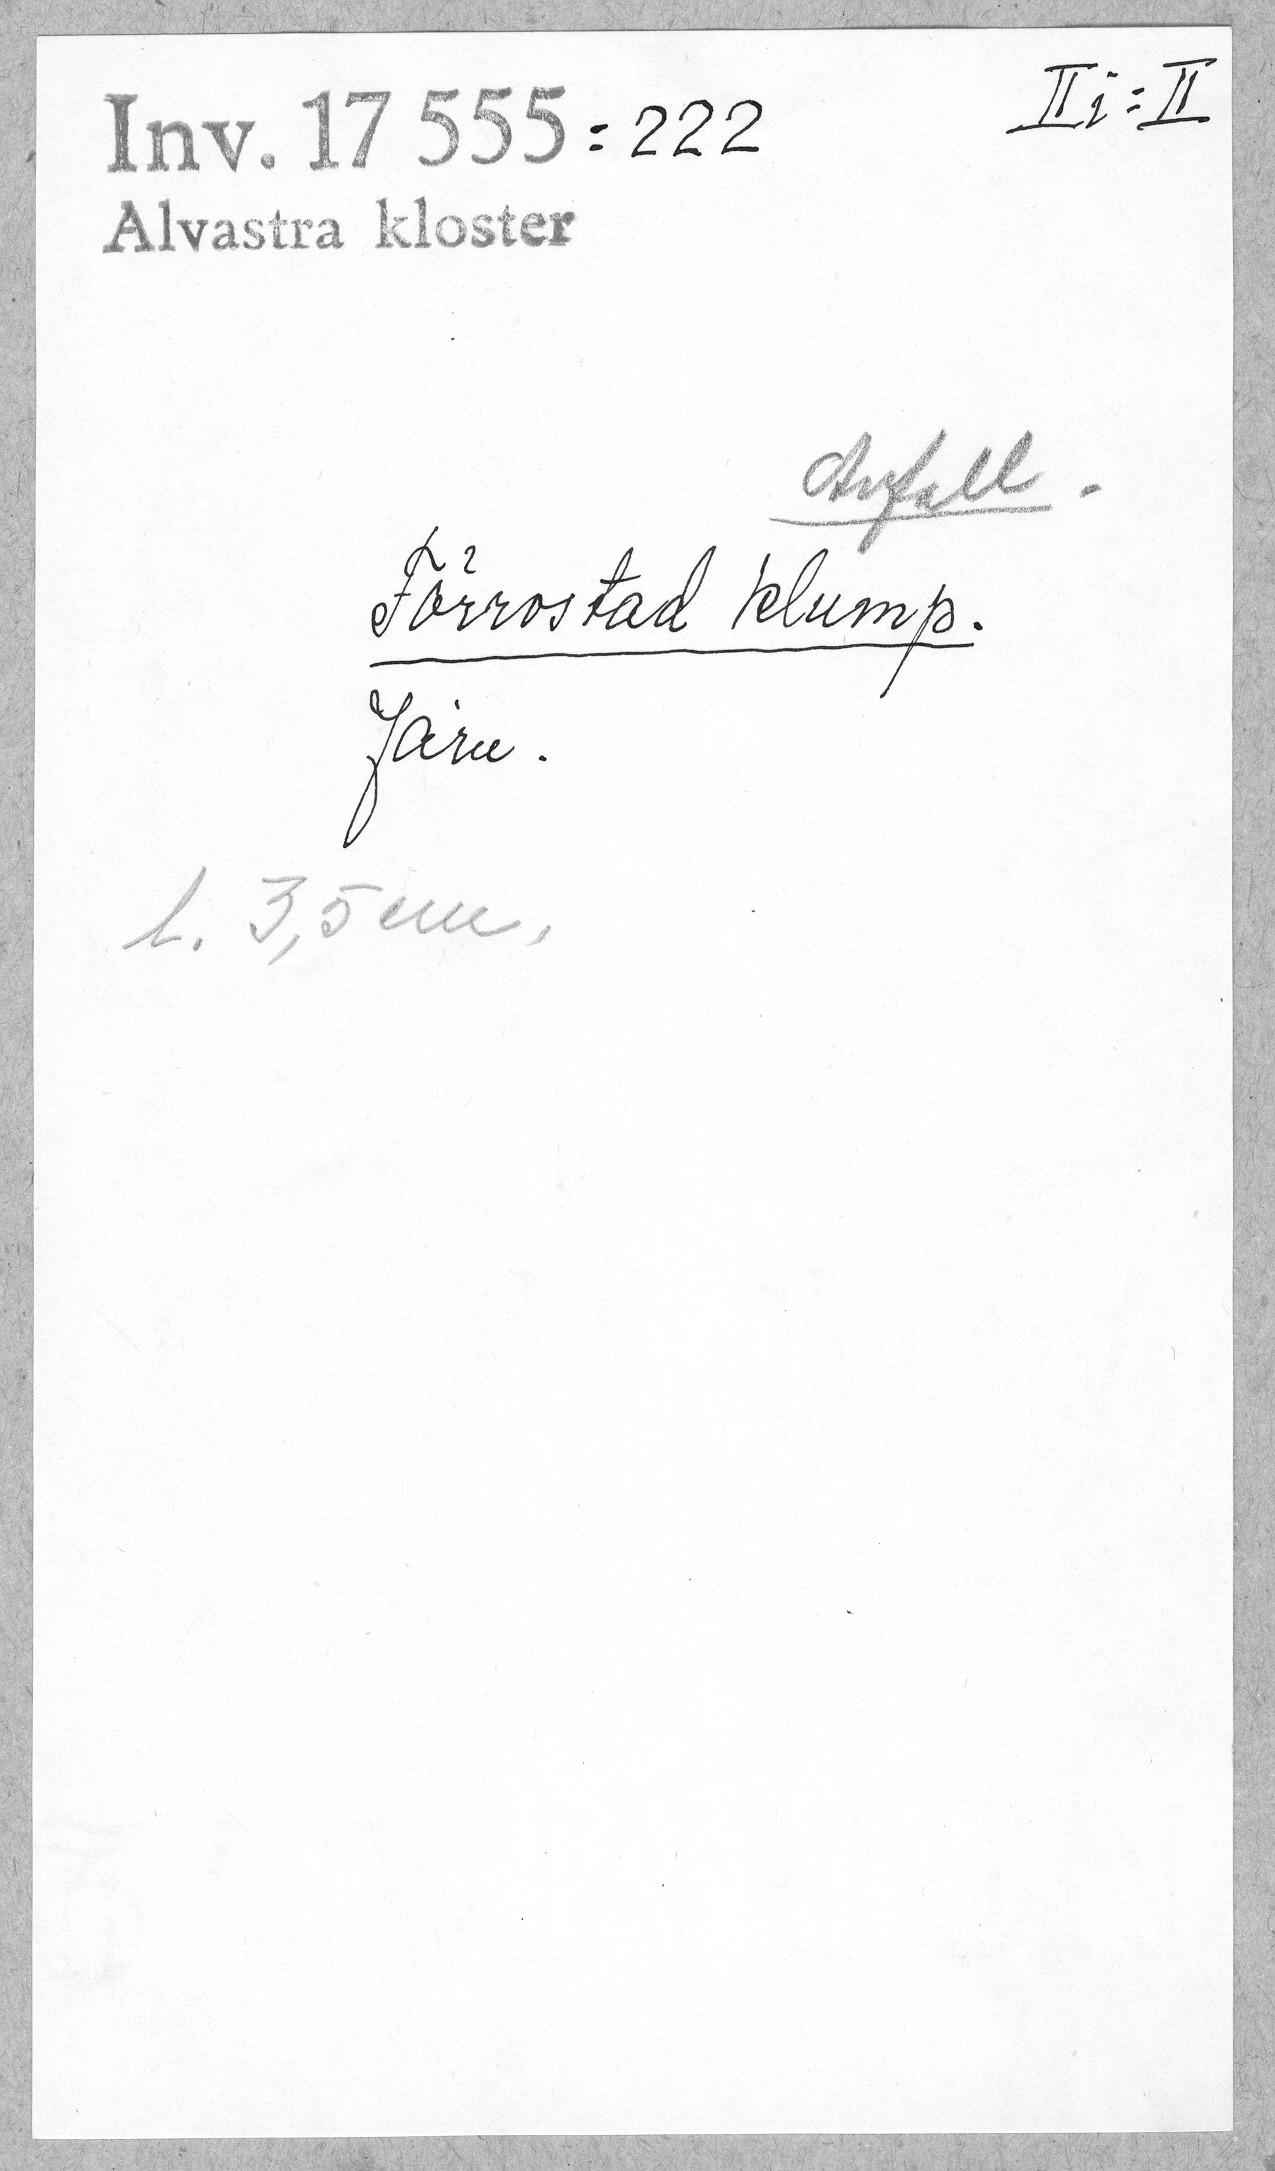 Inv. 17 555:222
IIi:II
Alvastra kloster
Avfall.
Förrostad klump.
Järn.
l. 3,5 cm.